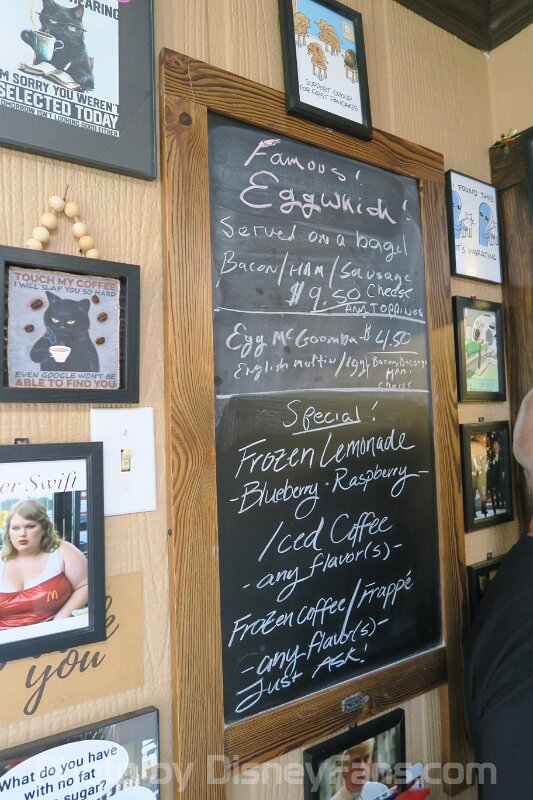 HEARING
I'M SORRY YOU WEREN'T
SELECTED TODAY
TOMORROW ISN'T LOOKING GOOD EITHER
SUPPORT GROUP
FOR FIRST PANCAKES
I FOUND THIS
IT'S VIBRATING
TOUCH MY COFFEE
I WILL SLAP YOU SO HARD
EVEN GOOGLE WON'T BE
ABLE TO FIND YOU
er Swift
you
What do you have
with no fat
sugar?
Famous!
Eggwhich!
Served on a bagel
Bacon/HAM/Sausage
$9.50 Cheese
ANY TOPPINGS
Egg McGoomba - $4.50
English muffin/egg/Bacon, Sausage
HAM
choice
Special!
Frozen Lemonade
- Blueberry · Raspberry -
Iced Coffee
- any flavor(s) -
Frozen coffee/Frappé
- any flavor(s) -
Just Ask!
by DisneyFans.com